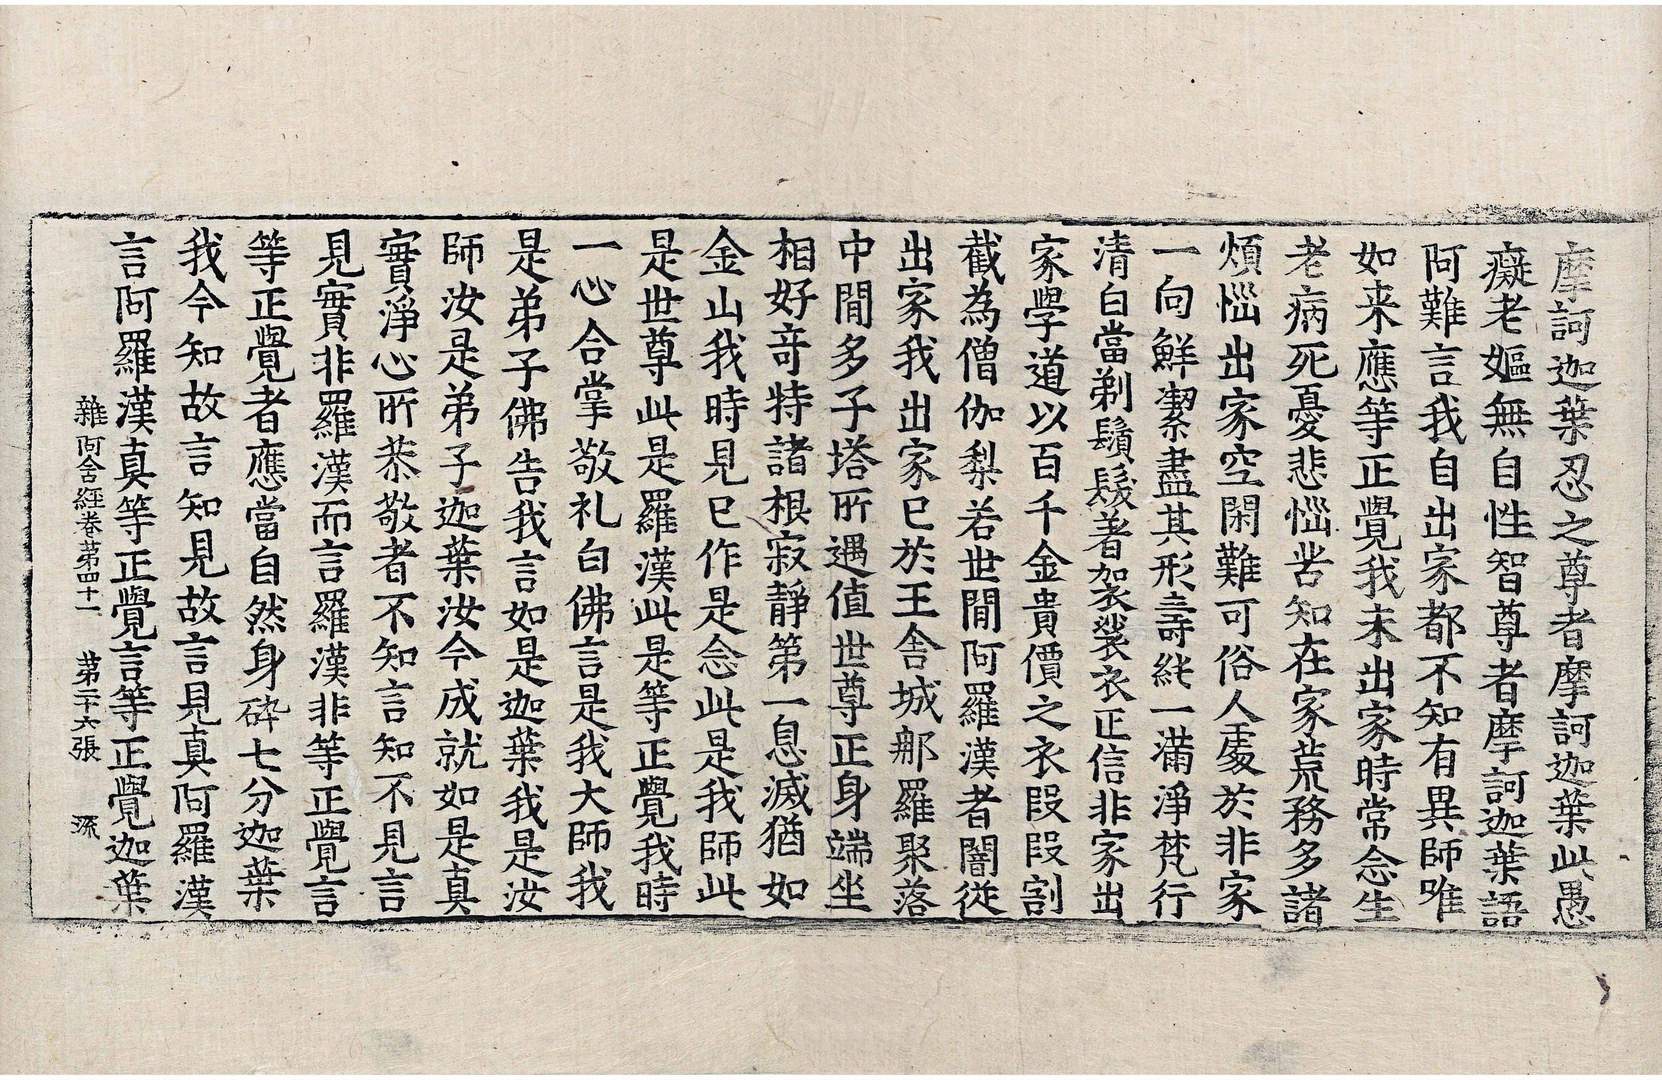 摩訶迦葉忍之尊者摩訶迦葉此愚
癡老嫗無自性智尊者摩訶迦葉語
阿難言我自出家都不知有異師唯
如来應等正覺我未出家時常念生
老病死憂悲惱苦知在家荒務多諸
煩惱出家空閑難可俗人處於非家
一向鮮潔盡其形壽純一滿淨梵行
清白當剃鬚髮著袈裟衣正信非家出
家學道以百千金貴價之衣段段割
截為僧伽梨若世間阿羅漢者聞從
出家我出家已於王舍城那羅聚落
中間多子塔所遇值世尊正身端坐
相好奇特諸根寂靜第一息滅猶如
金山我時見已作是念此是我師此
是世尊此是羅漢此是等正覺我時
一心合掌敬礼白佛言是我大師我
是弟子佛告我言如是迦葉我是汝
師汝是弟子迦葉汝今成就如是真
實淨心所恭敬者不知言知不見言
見實非羅漢而言羅漢非等正覺言
等正覺者應當自然身碎七分迦葉
我今知故言知見故言見真阿羅漢
言阿羅漢真等正覺言等正覺迦葉
雜阿含經卷第四十一 第二十六張 流